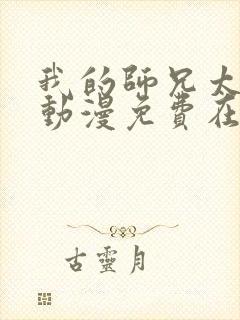 我的師兄太
動漫免費在
古靈月